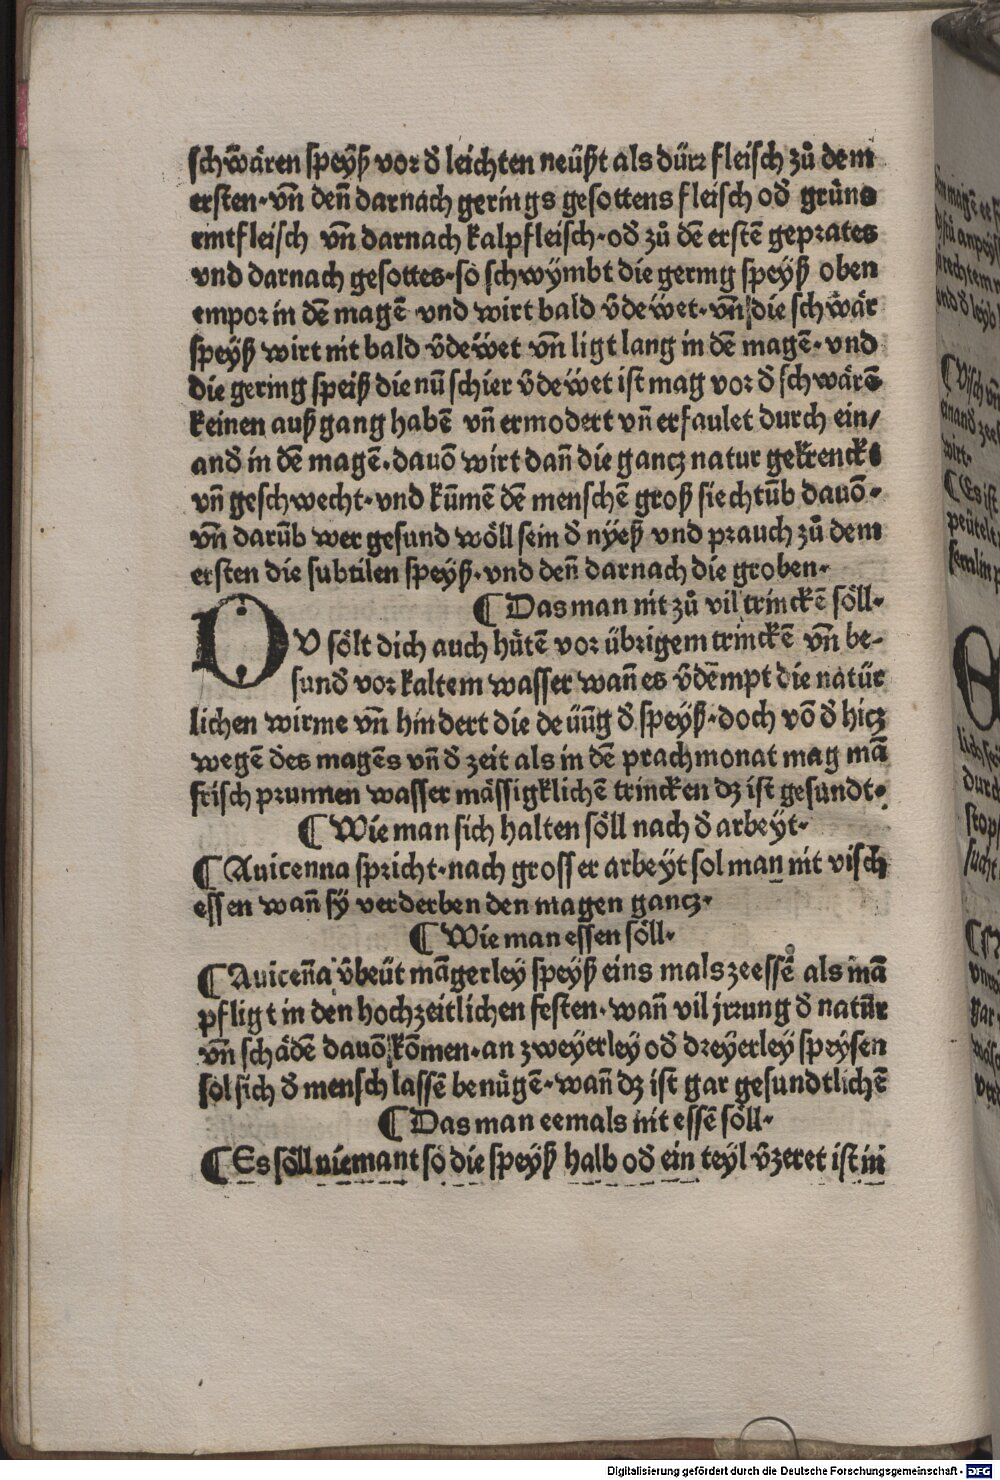 schwären speyß vor đ leichten neüßt als dürr fleisch zů dem
ersten· vn̄ den̄ darnach gerings gesottens fleisch ođ grůns
rintfleisch vn̄ darnach kalpfleisch· ođ zů dē erstē geprates
vnd darnach gesottes· so schwymbt die gering speyß oben
empor in dē magē vnd wirt bald v̄dewet· vn̄ die schwär
speyß wirt nit bald v̄dewet vn̄ ligt lang in dē magē· vnd
die gering speiß die nū schier v̄dewet ist mag vor đ schwärē
keinen außgang habē vn̄ ermodert vn̄ erfaulet durch ein/
anđ in dē magē· dauō wirt dan̄ die gancz natur gekrenckt
vn̄ geschwecht· vnd kūmē dē menschē groß siechtūb dauō·
vn̄ darūb wer gesund wöll sein đ nyeß vnd prauch zů dem
ersten die subtilen speyß· vnd den̄ darnach die groben·
¶ Das man nit zů vil trinckē söll·
DV sölt dich auch hütē vor übrigem trinckē vn̄ be-
sunđ vor kaltem wasser wan̄ es v̄dēmpt die natür
lichen wirme vn̄ hindert die deüūg đ speyß· doch vō đ hicz
wegē des magēs vn̄ đ zeit als in dē prachmonat mag mā
frisch prunnen wasser mässigklichē trincken dz ist gesundt·
¶ Wie man sich halten söll nach đ arbeyt·
¶ Auicenna spricht· nach grosser arbeyt sol man nit visch
essen wan̄ sy verderben den magen gancz·
¶ Wie man essen söll·
¶ Auicen̄a v̄beüt māgerley speyß eins mals zeessē als mā
pfligt in den hochzeitlichen festen· wan̄ vil jrrung đ natür
vn̄ schädē dauō kōmen· an zweyerley ođ dreyerley speysen
sol sich đ mensch lassē benügē· wan̄ dz ist gar gesundtlichē
¶ Das man eemals nit essē söll·
¶ Es söll niemant so die speyß halb ođ ein teyl v̄zeret ist in
Digitalisierung gefördert durch die Deutsche Forschungsgemeinschaft - DFG